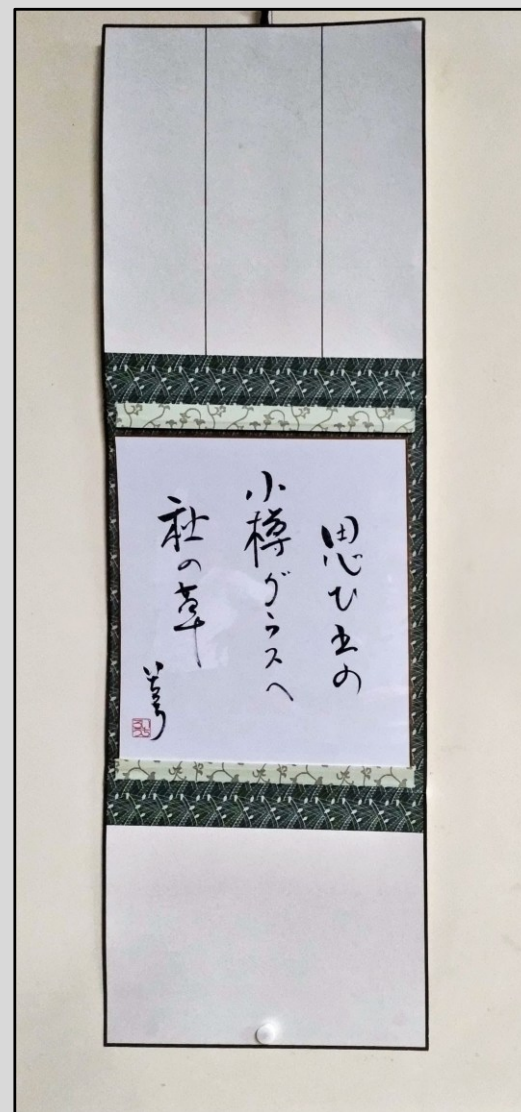 思ひ出の
小樽グラスへ
秋の草